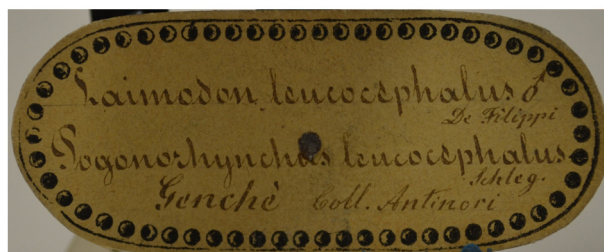 Laimodon leucocephalus ♂
De Filippi
Pogonorhynchus leucocephalus
Schleg.
Genchè Coll. Antinori